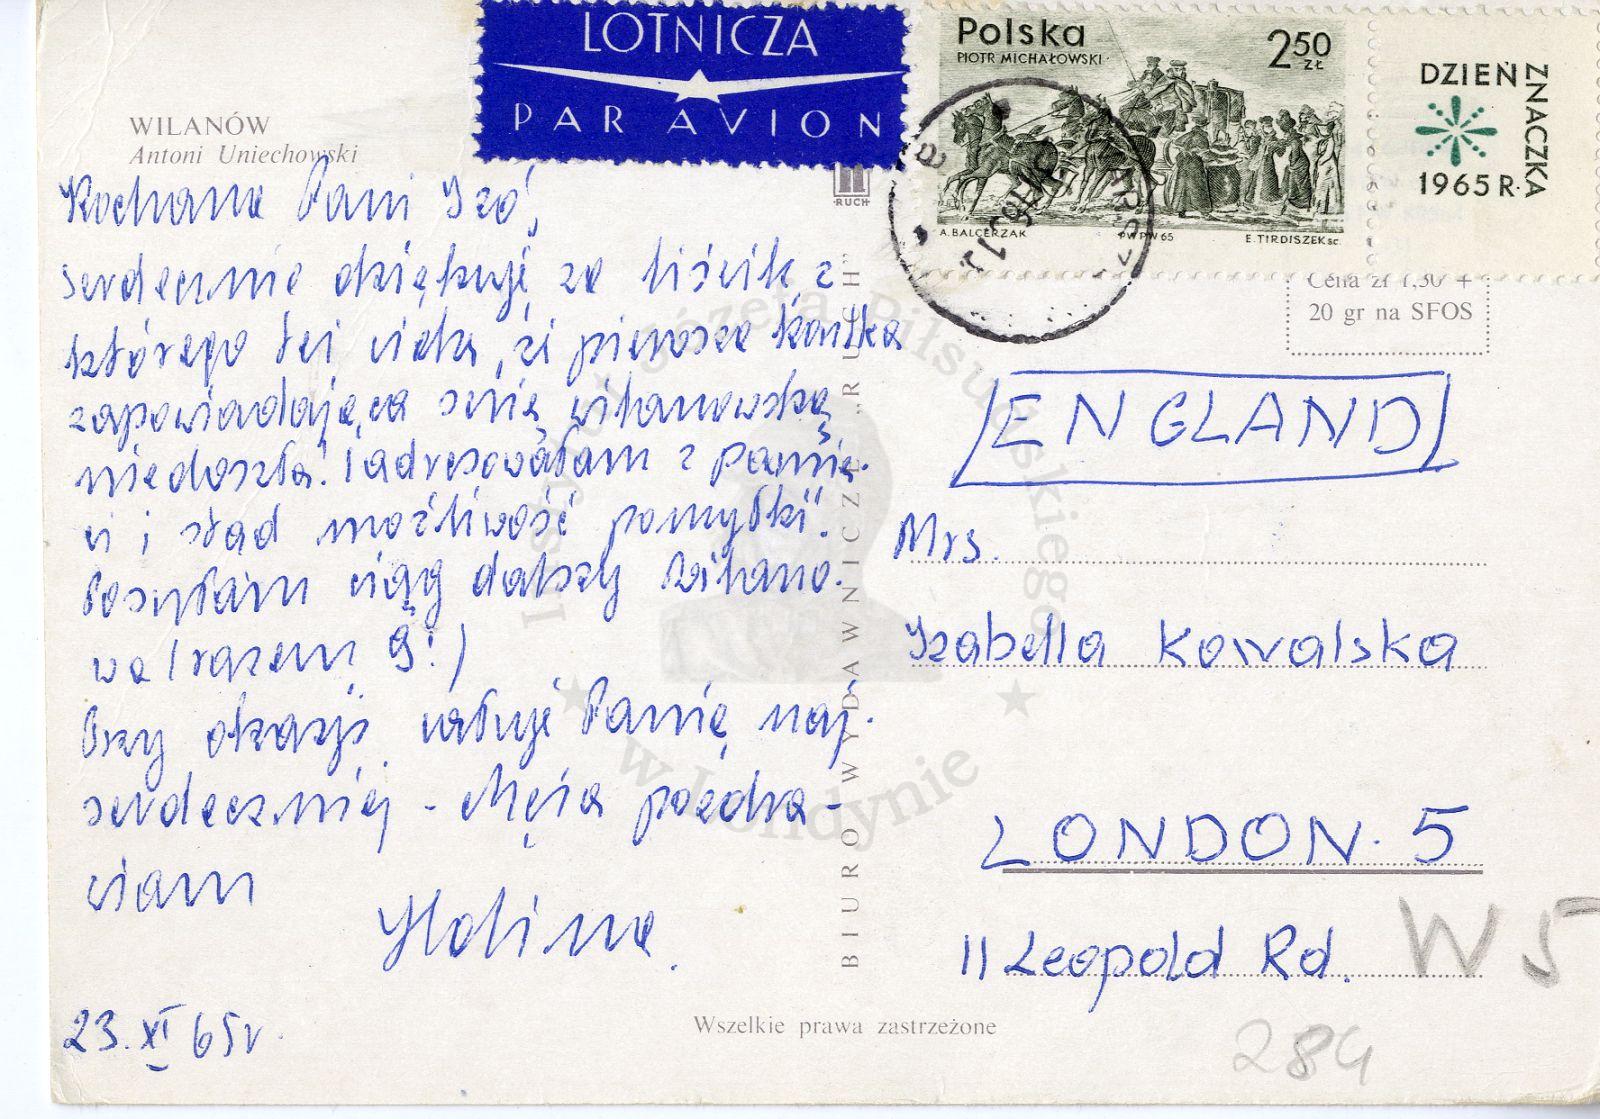 LOTNICZA
PAR AVION
Polska
PIOTR MICHAŁOWSKI
2 50 ZŁ
A. BALCERZAK PWPW 65 E. TIRDISZEK sc.
DZIEŃ
ZNACZKA
1965 R.
WILANÓW
Antoni Uniechowski
RUCH
Cena zł 1,30 +
20 gr na SFOS
Kochana Pani Izo,
serdecznie dziękuję za liścik, z
którego też widzę, że pierwsza kartka
zapowiadająca serię wilanowską
niedoszła! (adresowałam z pamię-
ci i stąd możliwość pomyłki".
Posyłam ciąg dalszy Wilano-
wa (razem 9!)
Przy okazji całuję Panią naj-
serdeczniej - Męża pozdra-
wiam
Halina.
23.XI 65r.
BIURO WYDAWNICZE „RUCH"
ENGLAND
Mrs.
Izabella Kowalska
LONDON. 5
11 Leopold Rd. W5
284
Wszelkie prawa zastrzeżone
Instytut Józefa Piłsudskiego
w Londynie